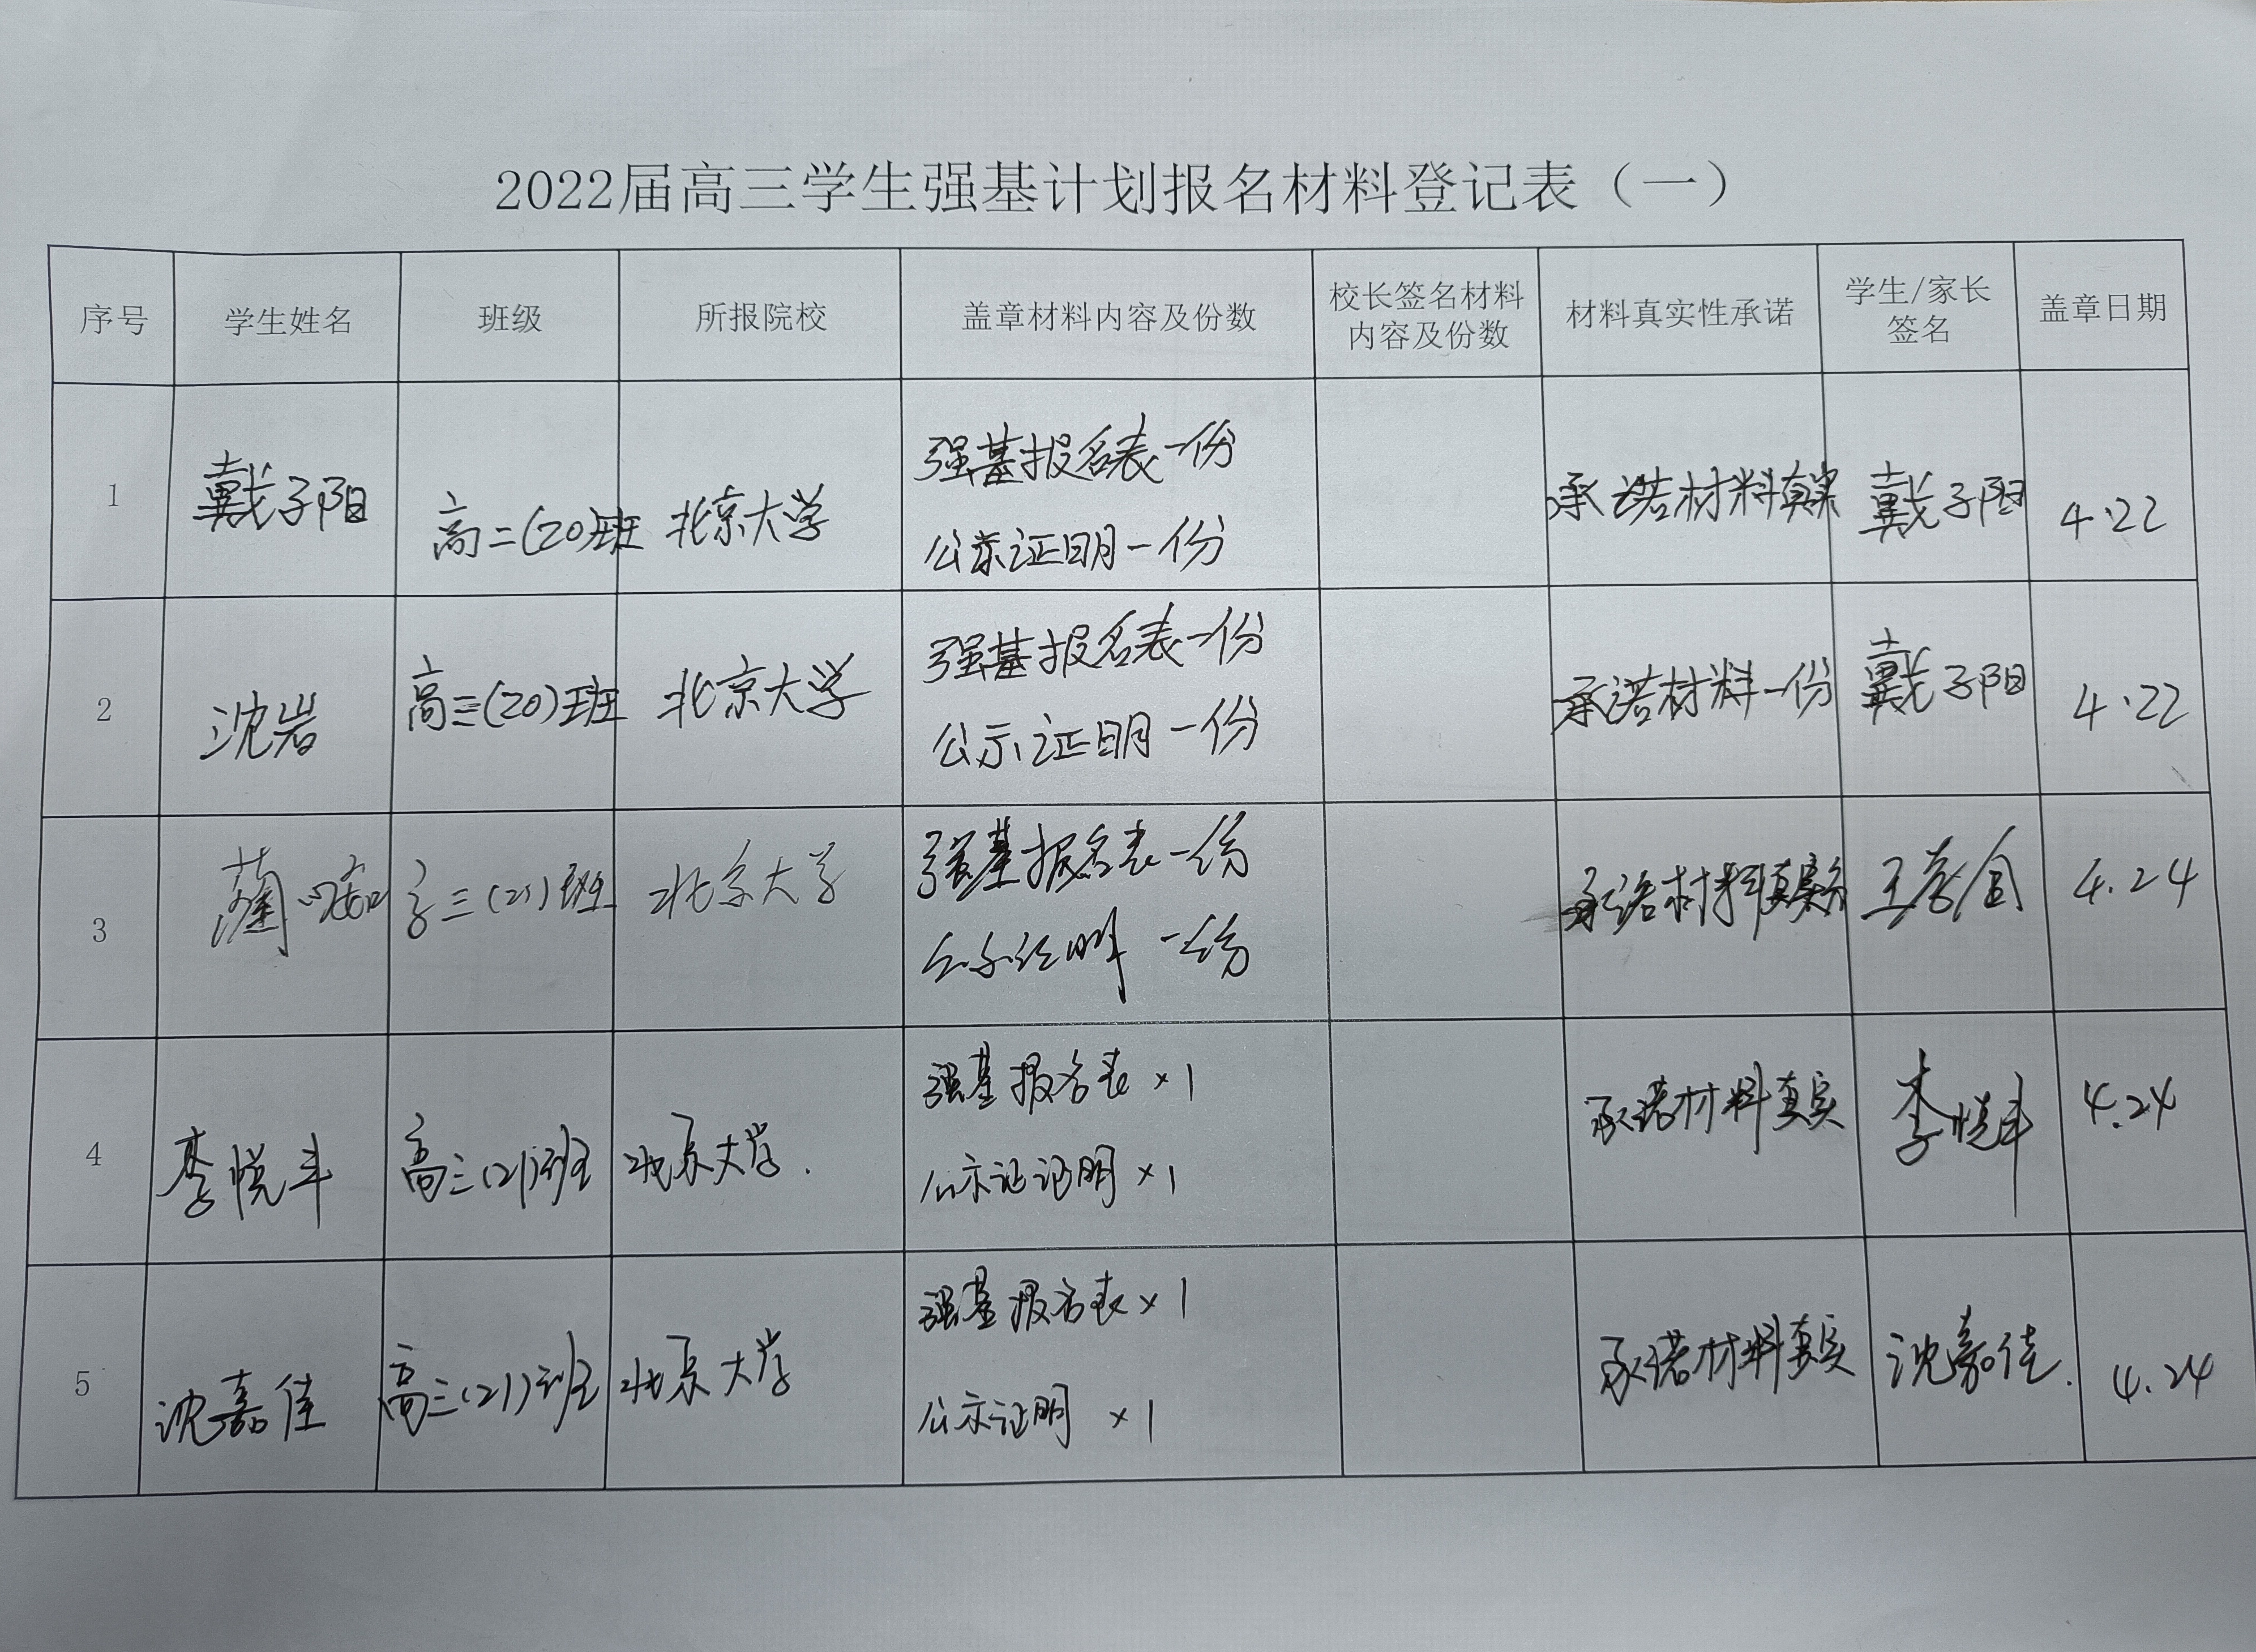 2022届高三学生强基计划报名材料登记表（一）
序号 学生姓名 班级 所报院校 盖章材料内容及份数 校长签名材料 材料真实性承诺 学生/家长 盖章日期
内容及份数 签名
1 戴子阳 高二(20)班 北京大学 强基报名表一份 承诺材料真实 戴子阳 4.22
公示证明一份
2 沈岩 高三(20)班 北京大学 强基报名表一份 承诺材料一份 戴子阳 4.22
公示证明一份
3 高三(21)班 北京大学 强基报名表一份 承诺材料真实 4.24
公示证明 一份
4 李悦丰 高三(21)班 北京大学. 强基报名表×1 承诺材料真实 李悦丰 4.24
公示证证明×1
5 沈嘉佳 高三(21)班 北京大学 强基报名表×1 承诺材料真实 沈嘉佳. 4.24
公示证明 ×1